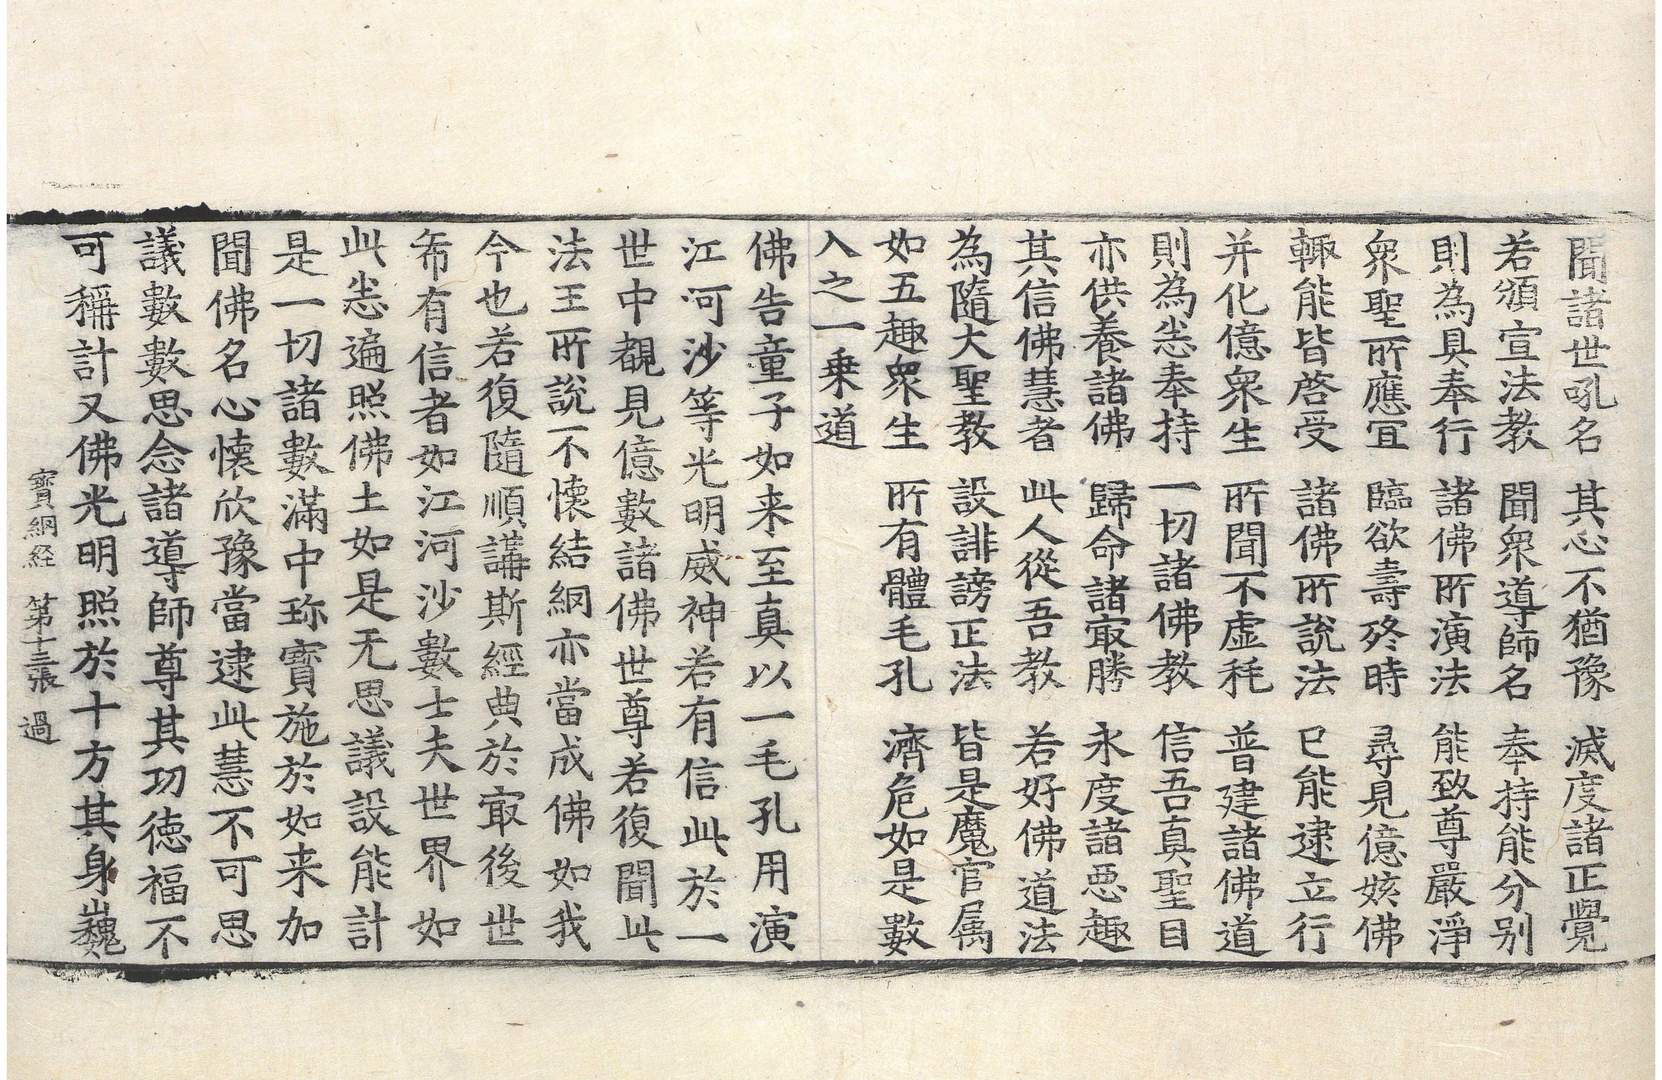 聞諸世吼名 其心不猶豫 滅度諸正覺
若頒宣法教 聞衆導師名 奉持能分别
則為具奉行 諸佛所演法 能致尊嚴淨
衆聖所應冝 臨欲壽終時 尋見億姟佛
輙能皆啓受 諸佛所說法 已能逮立行
并化億衆生 所聞不虚秏 普建諸佛道
則為悉奉持 一切諸佛教 信吾真聖目
亦供養諸佛 歸命諸㝡勝 永度諸惡趣
其信佛慧者 此人從吾教 若好佛道法
為隨大聖教 設誹謗正法 皆是魔官属
如五趣衆生 所有體毛孔 濟危如是數
入之一乗道
佛告童子如来至真以一毛孔用演
江河沙等光明威神若有信此於一
世中覩見億數諸佛世尊若復聞此
法王所說不懷結網亦當成佛如我
今也若復隨順講斯經典於㝡後世
希有信者如江河沙數士夫世界如
此悉遍照佛土如是无思議設能計
是一切諸數滿中珎寳施於如来加
聞佛名心懷欣豫當逮此慧不可思
議數數思念諸導師尊其功徳福不
可稱計又佛光明照於十方其身巍
寳網経 第十三張 過